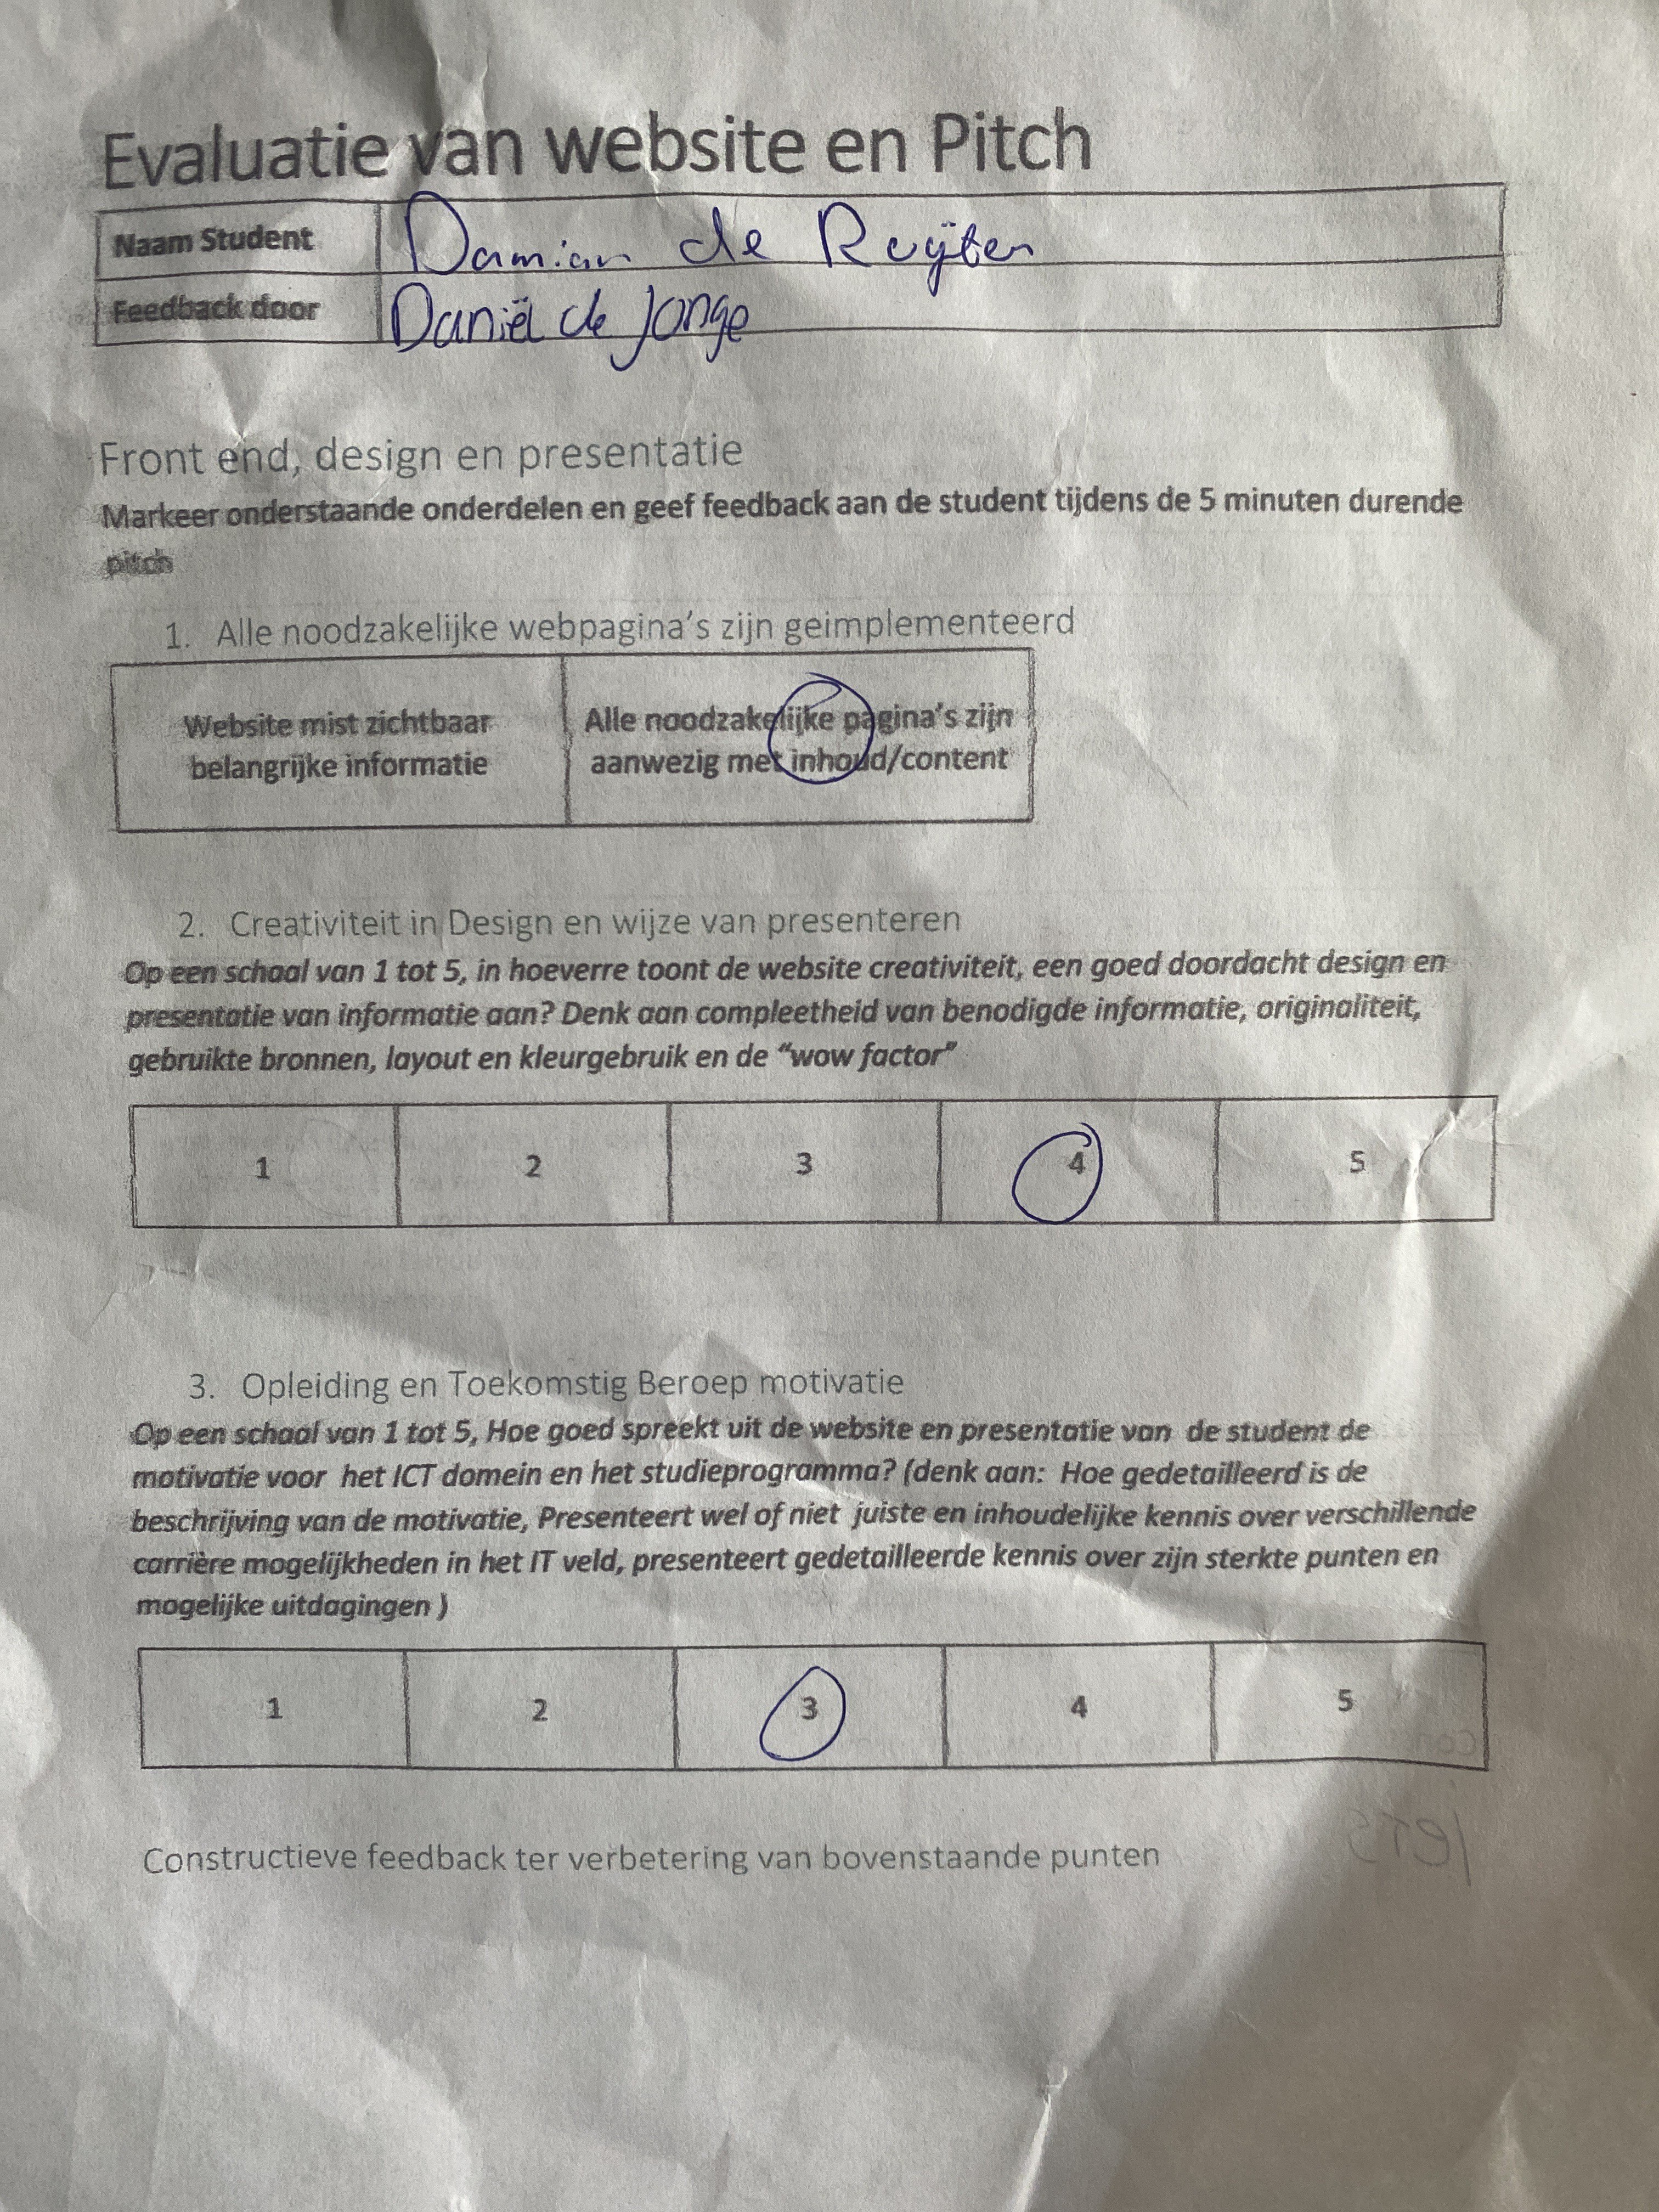 Evaluatie van website en Pitch
Naam Student Damian de Ruÿter
Feedback door Daniël de Jonge
Front end, design en presentatie
Markeer onderstaande onderdelen en geef feedback aan de student tijdens de 5 minuten durende
pitch
1. Alle noodzakelijke webpagina's zijn geimplementeerd
Website mist zichtbaar
belangrijke informatie
Alle noodzakelijke pagina's zijn
aanwezig met inhoud/content
2. Creativiteit in Design en wijze van presenteren
Op een schaal van 1 tot 5, in hoeverre toont de website creativiteit, een goed doordacht design en
presentatie van informatie aan? Denk aan compleetheid van benodigde informatie, originaliteit,
gebruikte bronnen, layout en kleurgebruik en de “wow factor”
1 2 3 4 5
3. Opleiding en Toekomstig Beroep motivatie
Op een schaal van 1 tot 5, Hoe goed spreekt uit de website en presentatie van de student de
motivatie voor het ICT domein en het studieprogramma? (denk aan: Hoe gedetailleerd is de
beschrijving van de motivatie, Presenteert wel of niet juiste en inhoudelijke kennis over verschillende
carrière mogelijkheden in het IT veld, presenteert gedetailleerde kennis over zijn sterkte punten en
mogelijke uitdagingen )
1 2 3 4 5
Constructieve feedback ter verbetering van bovenstaande punten